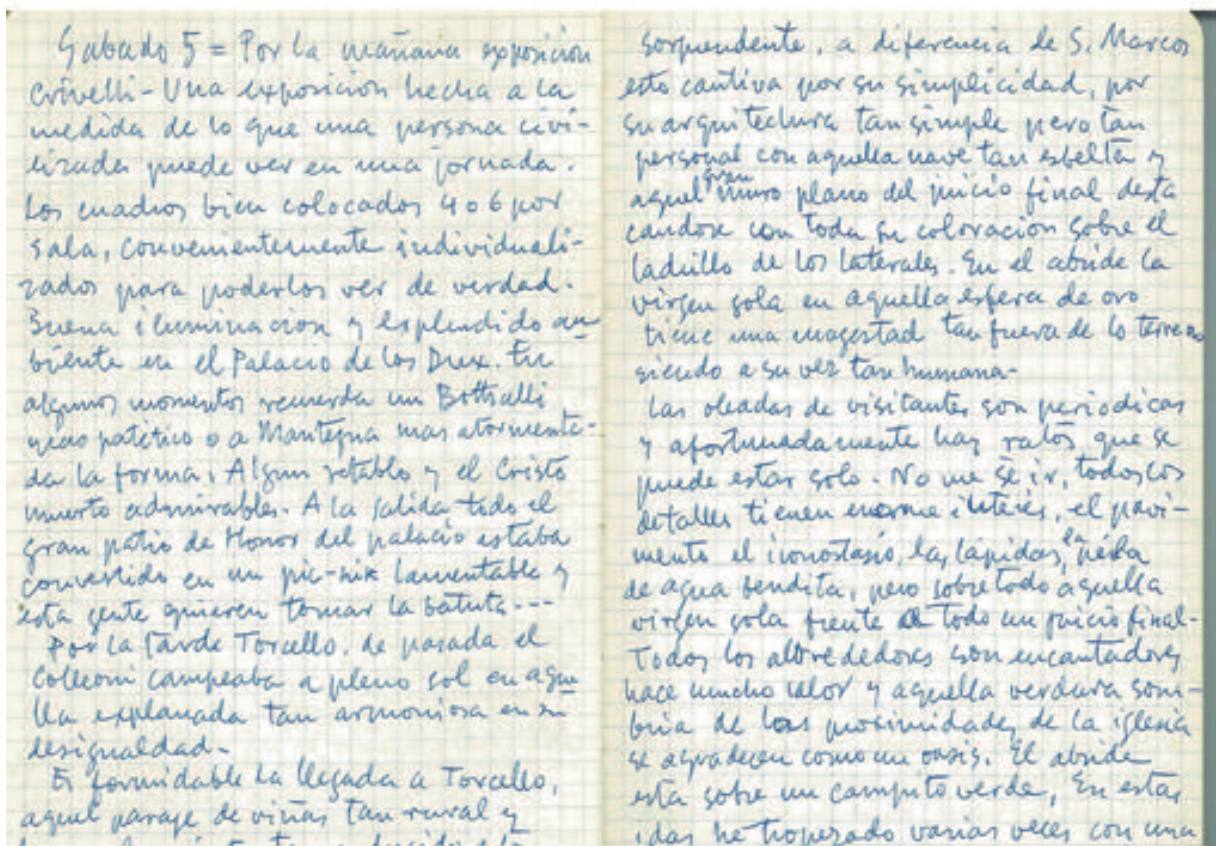 Sabado 5 = Por la mañana exposicion
Crivelli - Una exposicion hecha a la
medida de lo que una persona civi-
lizada puede ver en una jornada.
Los cuadros bien colocados 4 o 6 por
sala, convenientemente individuali-
zados para poderlos ver de verdad.
Buena iluminacion y esplendido am
biente en el Palacio de los Dux. En
algunos momentos recuerda un Botticelli
mas patetico o a Mantegna mas atormenta-
da la forma. Algun retablo y el Cristo
muerto admirables. A la salida todo el
gran patio de Honor del palacio estaba
convertido en un pic-nik lamentable y
esta gente quieren tomar la batuta ---
Por la tarde Torcello. de pasada el
Colleoni campeaba a pleno sol en aque
lla explanada tan armoniosa en su
desigualdad -
Es formidable la llegada a Torcello,
aquel paraje de viñas tan rural y
sorprendente, a diferencia de S. Marcos
esto cautiva por su simplicidad, por
su arquitectura tan simple pero tan
personal con aquella nave tan esbelta y
aquel gran muro plano del juicio final desta
candose con toda su coloracion sobre el
ladrillo de los laterales. En el abside la
virgen sola en aquella esfera de oro
tiene una magestad tan fuera de lo terreno
siendo a su vez tan humana -
Las oleadas de visitantes son periodicas
y afortunadamente hay ratos que se
puede estar solo - No me sé ir, todos los
detalles tienen enorme interés, el pavi-
mento el iconostasio, las lápidas, la
de agua bendita, pero sobretodo aquella
virgen sola frente a todo un juicio final -
Todos los alrededores son encantadores
hace mucho calor y aquella verdura som-
bria de las proximidades de la iglesia
se agradecen como un oasis. El abside
esta sobre un campito verde, En estas
idas he tropezado varias veces con una